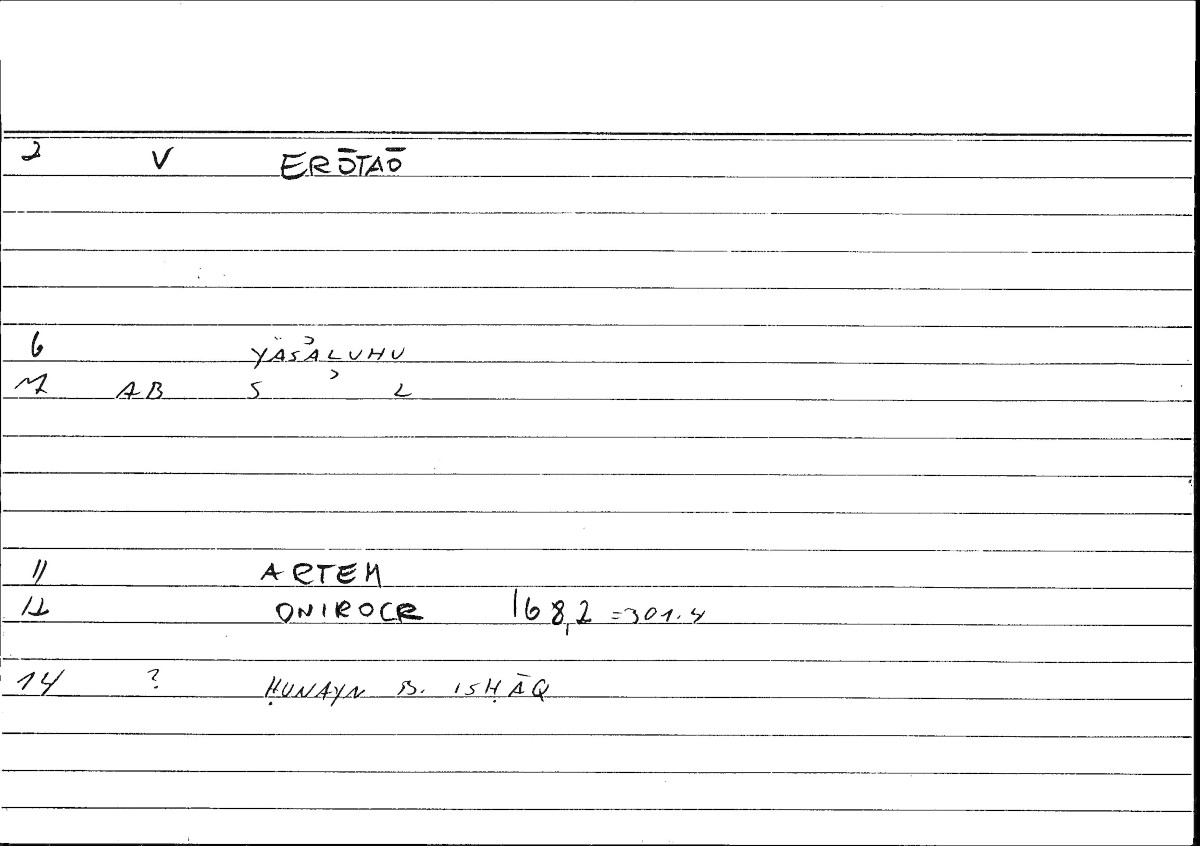 2 V ERŌTAŌ
6 YASʾALUHU
7 AB S ʾ L
11 ARTEM
12 ONIROCR 168,2 =301.4
14 ? ḤUNAYN B. ISḤĀQ